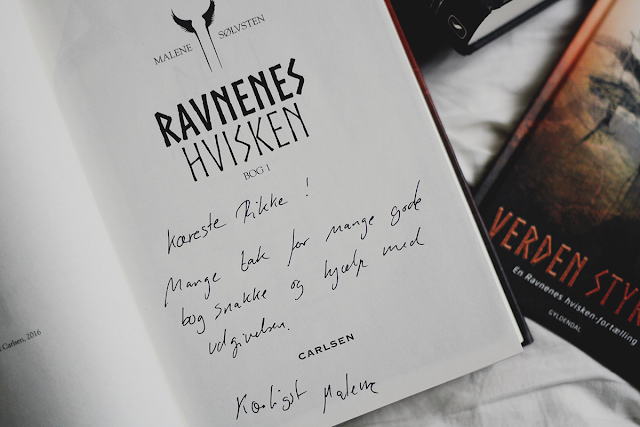 MALENE SØLVSTEN
RAVNENES
HVISKEN
BOG 1
Kæreste Rikke !
Mange tak for mange gode
bog snakke og hjælp med
udgivelsen.
CARLSEN
Kærligst Malene
Carlsen, 2016
VERDEN STY
En Ravnenes hvisken-fortælling
GYLDENDAL